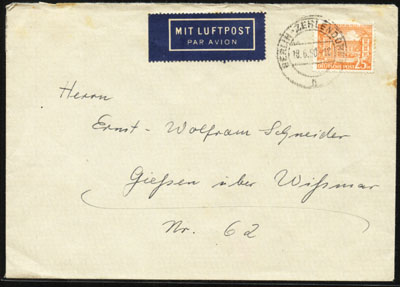 MIT LUFTPOST
PAR AVION
BERLIN-ZEHLENDORF
25
Herrn
Ernst-Wolfram Schneider
Gießen über Wißmar
Nr. 62